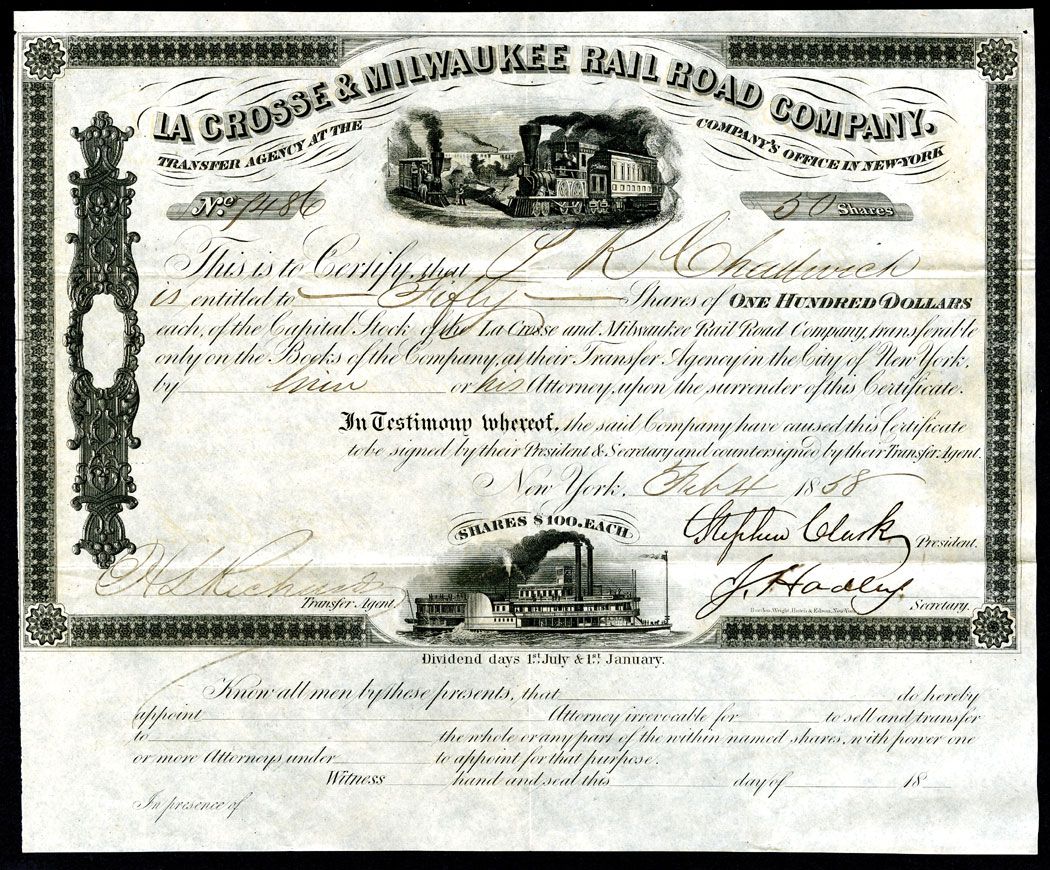 LA CROSSE & MILWAUKEE RAIL ROAD COMPANY.
TRANSFER AGENCY AT THE COMPANY'S OFFICE IN NEW-YORK
No. 9486 50 Shares
This is to Certify, that J R Chadwick
is entitled to Fifty Shares of ONE HUNDRED DOLLARS
each, of the Capital Stock of the La Crosse and Milwaukee Rail Road Company, transferable
only on the Books of the Company, at their Transfer Agency in the City of New York,
by him or his Attorney, upon the surrender of this Certificate.
In Testimony whereof, the said Company have caused this Certificate
to be signed by their President & Secretary and countersigned by their Transfer Agent.
New York, Feb 4 1858
SHARES $100. EACH
Stephen Clark President.
Transfer Agent.
J. Hadley Secretary.
Dividend days 1st July & 1st January.
Know all men by these presents, that do hereby
appoint Attorney irrevocable for to sell and transfer
to the whole or any part of the within named shares, with power one
or more Attorneys under to appoint for that purpose.
Witness hand and seal this day of 18
In presence of